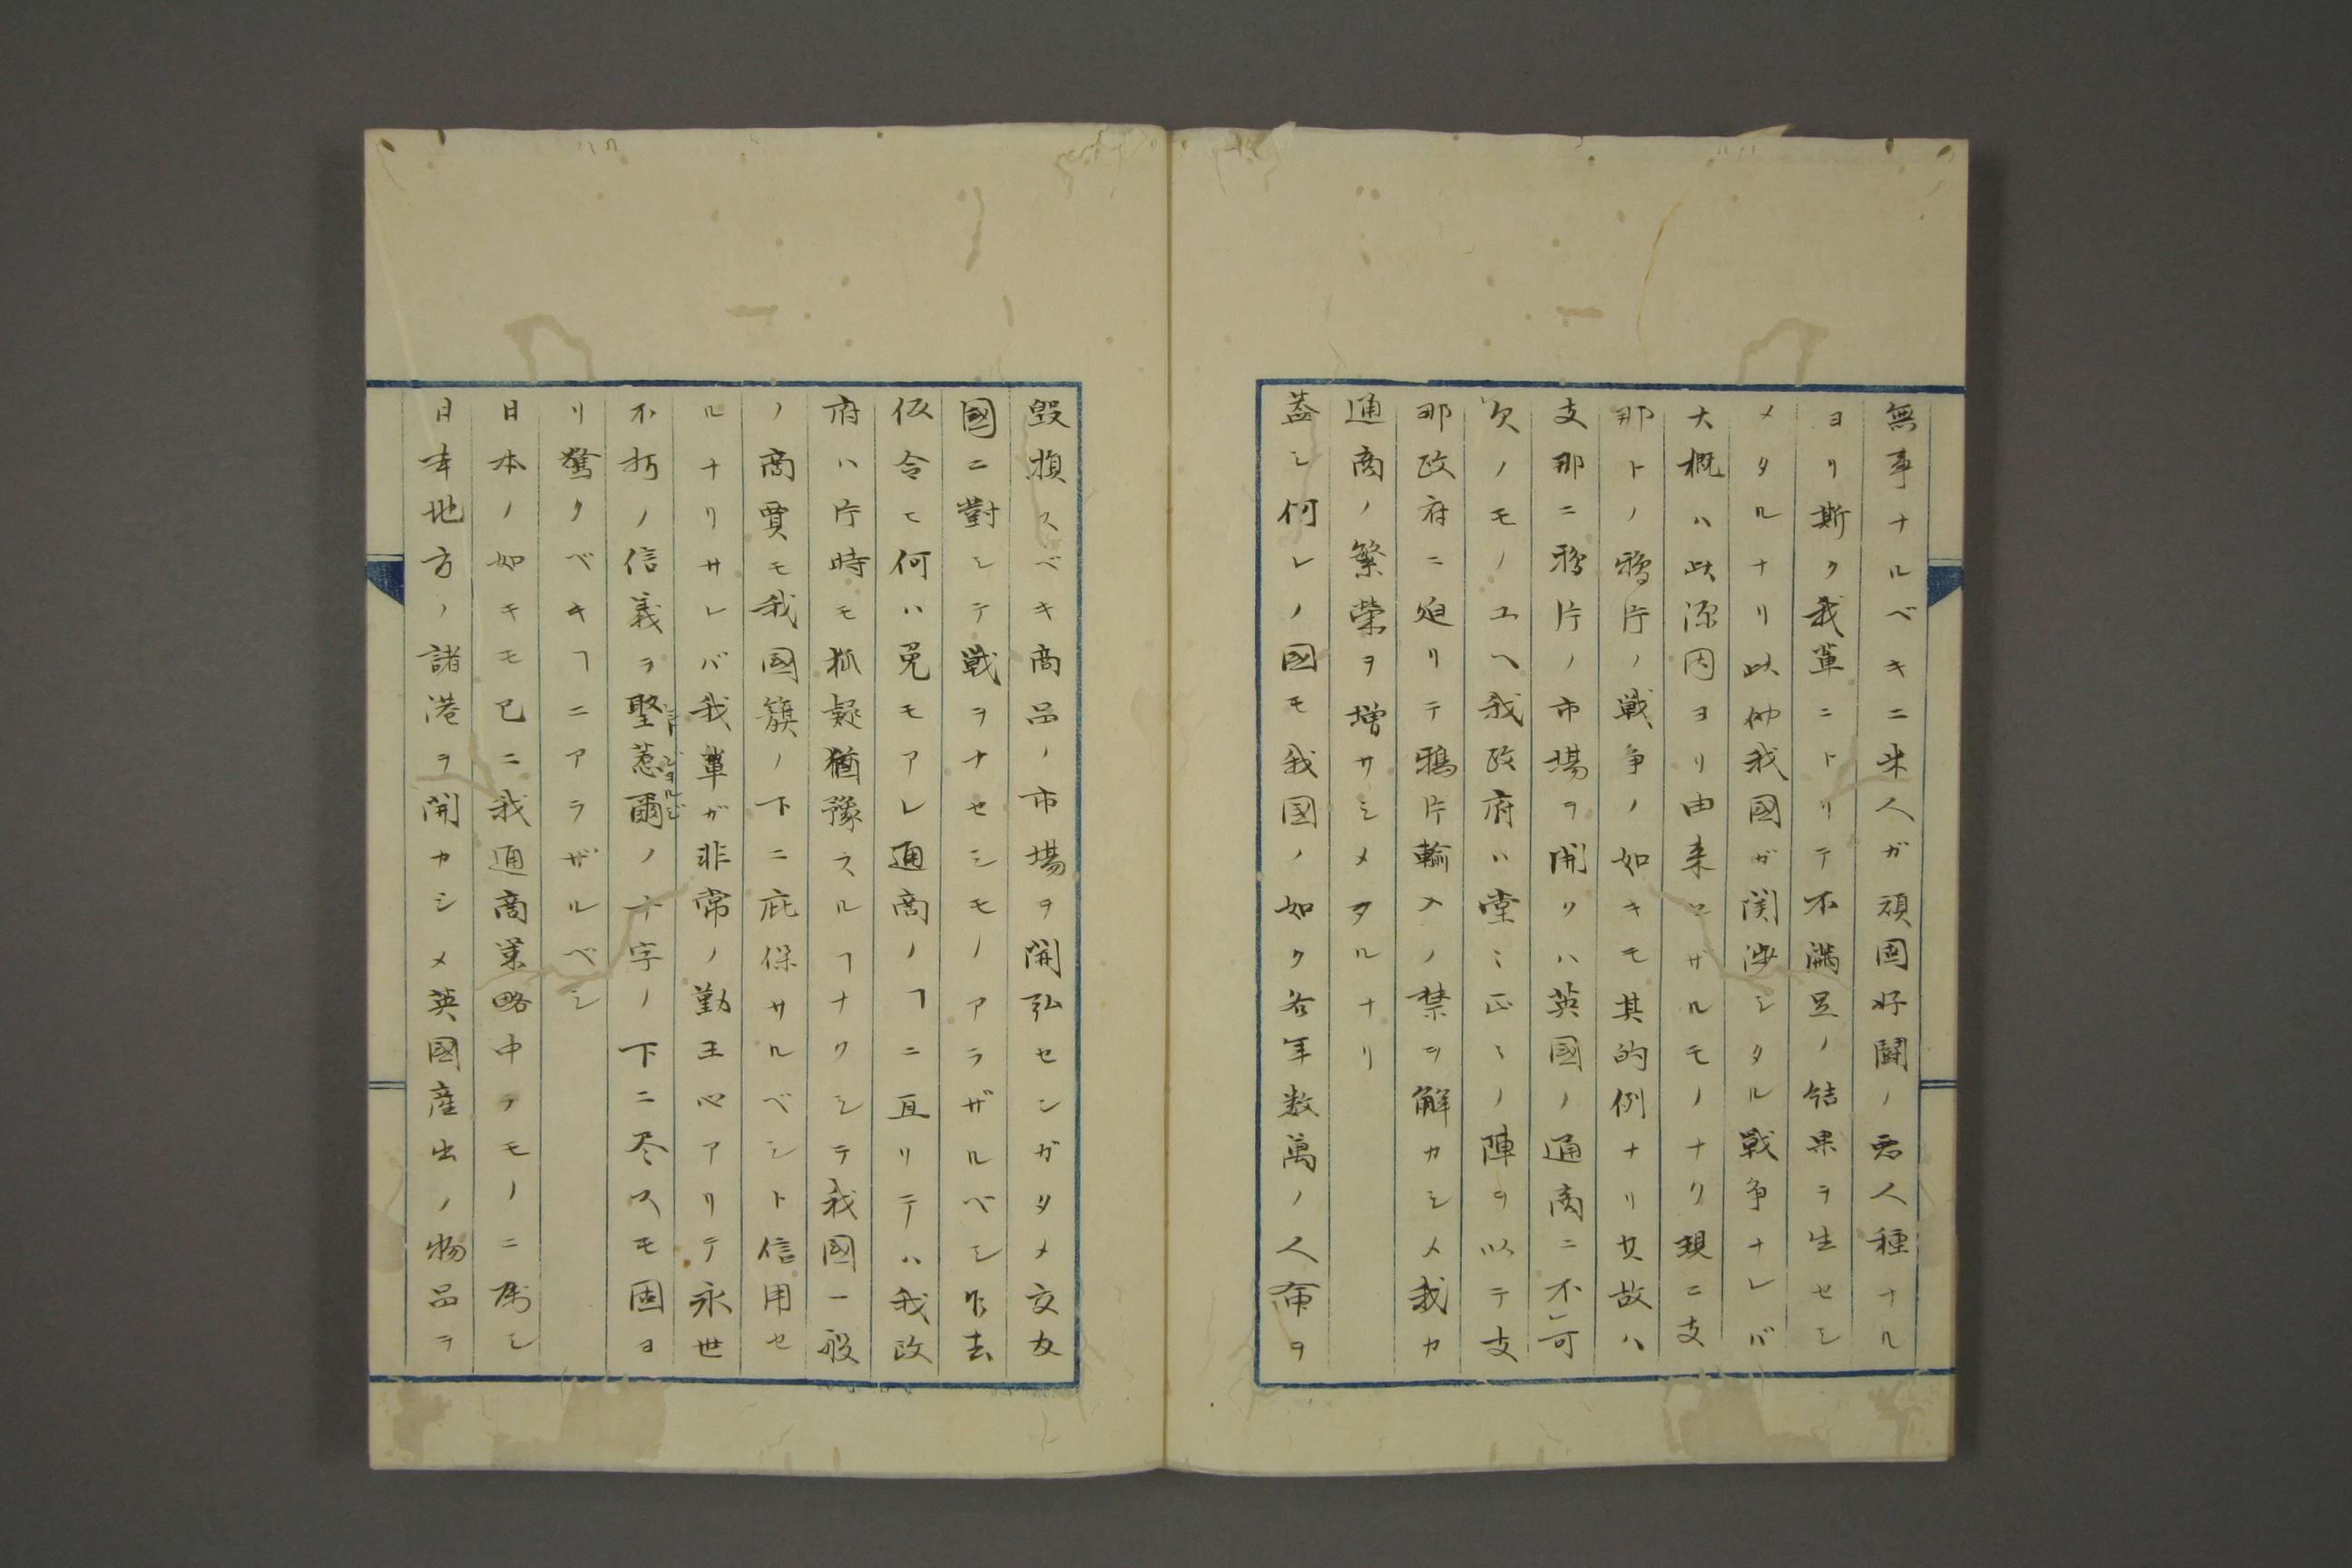 無事ナルベキニ米人ガ頑固好闘ノ悪人種ナル
ヨリ斯ク我輩ニトリテ不満足ノ結果ヲ生セシ
メタルナリ此他我國ガ関渉シタル戦争ナレバ
大概ハ此源因ヨリ由来セサルモノナク現ニ支
那トノ鴉片ノ戦争ノ如キモ其的例ナリ其故ハ
支那ニ鴉片ノ市場ヲ開クハ英國ノ通商ニ不可
欠ノモノユヘ我政府ハ堂〻正〻ノ陣ヲ以テ支
那政府ニ迫リテ鴉片輸入ノ禁ヲ解カシメ我カ
通商ノ繁榮ヲ増サシメタルナリ
蓋シ何レノ國モ我国ノ如ク各年数萬ノ人命ヲ
毀損スベキ商品ノ市場ヲ開弘センガタメ交友
國ニ對シテ戦ヲナセシモノアラザルベシ乍去
仮令ヒ何ハ兎モアレ通商ノヿニ亘リテハ我政
府ハ片時モ狐疑猶豫スルヿナクシテ我國一般
ノ商賈モ我國籏ノ下ニ庇保サルベシト信用セ
ルナリサレバ我輩ガ非常ノ勤王心アリテ永世
不朽ノ信義ヲ堅惹爾ノ十字ノ下ニ尽スモ固ヨ
リ驚クベキヿニアラザルベシ
日本ノ如キモ已ニ我通商策略中ノモノニ属シ
日本地方ノ諸港ヲ開カシメ英國産出ノ物品ヲ